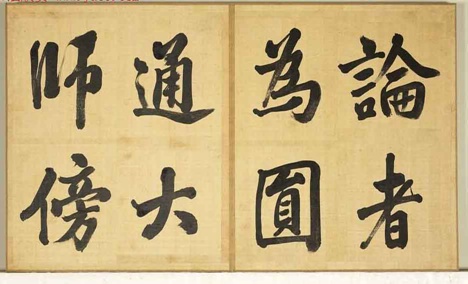 論者
為圓
通大
師傍